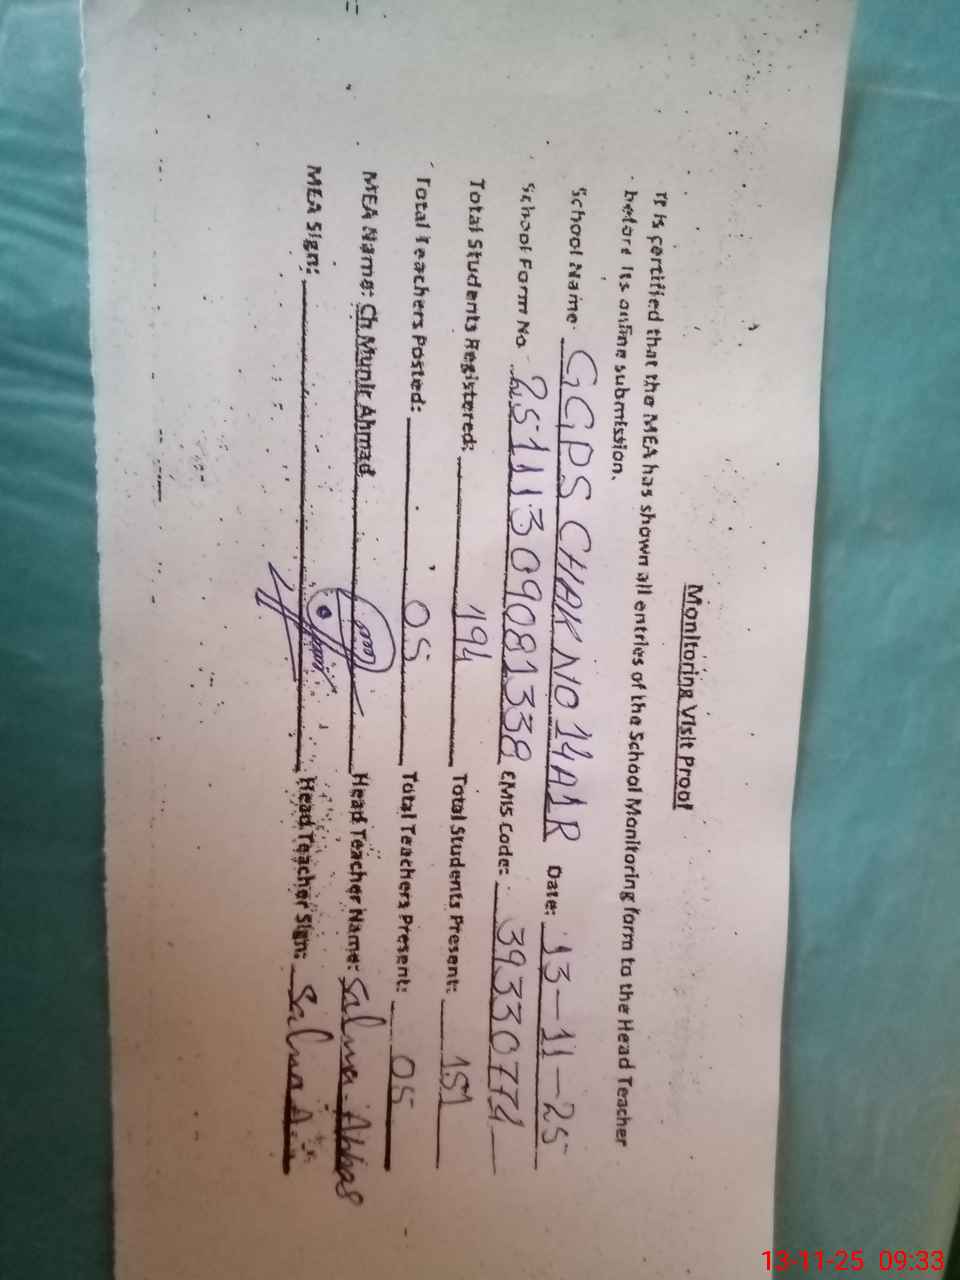 Monitoring Visit Proof
It is certified that the MEA has shown all entries of the School Monitoring form to the Head Teacher
before its online submission.
School Name: GGPS CHAK NO 14A1R Date: 13-11-25
School Form No 2511130908133８ EMIS Code: 39330774
Total Students Registered: 194 Total Students Present: 151
Total Teachers Posted: 05 Total Teachers Present: 05
MEA Name: Ch Munir Ahmad Head Teacher Name: Salma Abbas
MEA Sign: Head Teacher Sign: Salma A
13-11-25 09:33